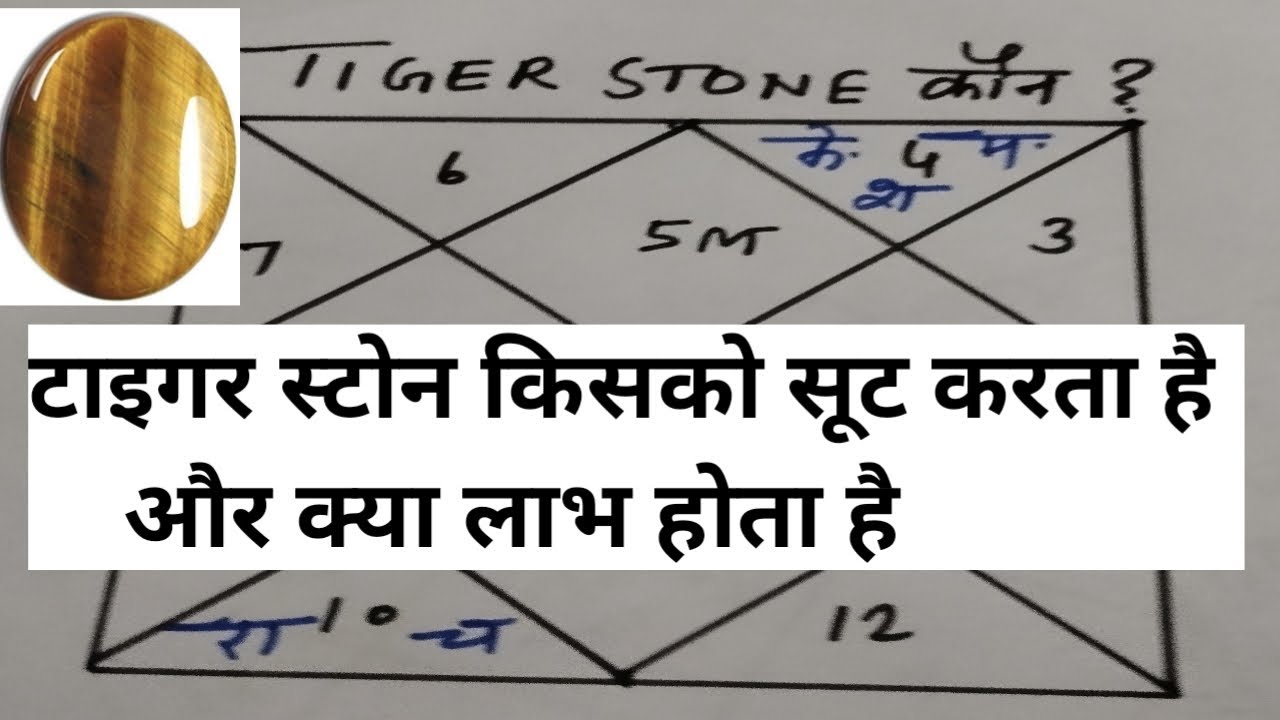 TIGER STONE कौन ?
6
के. 4 म.
श
7
5 M
3
टाइगर स्टोन किसको सूट करता है
और क्या लाभ होता है
रा 10 च
12